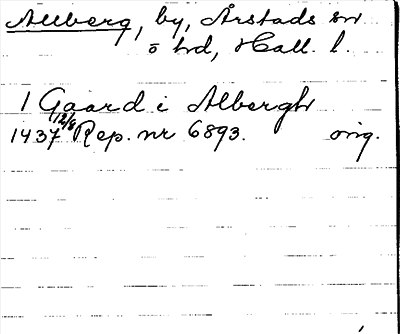 Allberg, by, Årstads sn
o hd, Hall. l.
1 Gaard i Albergh
1437 12/6 Rep. nr 6893. orig.